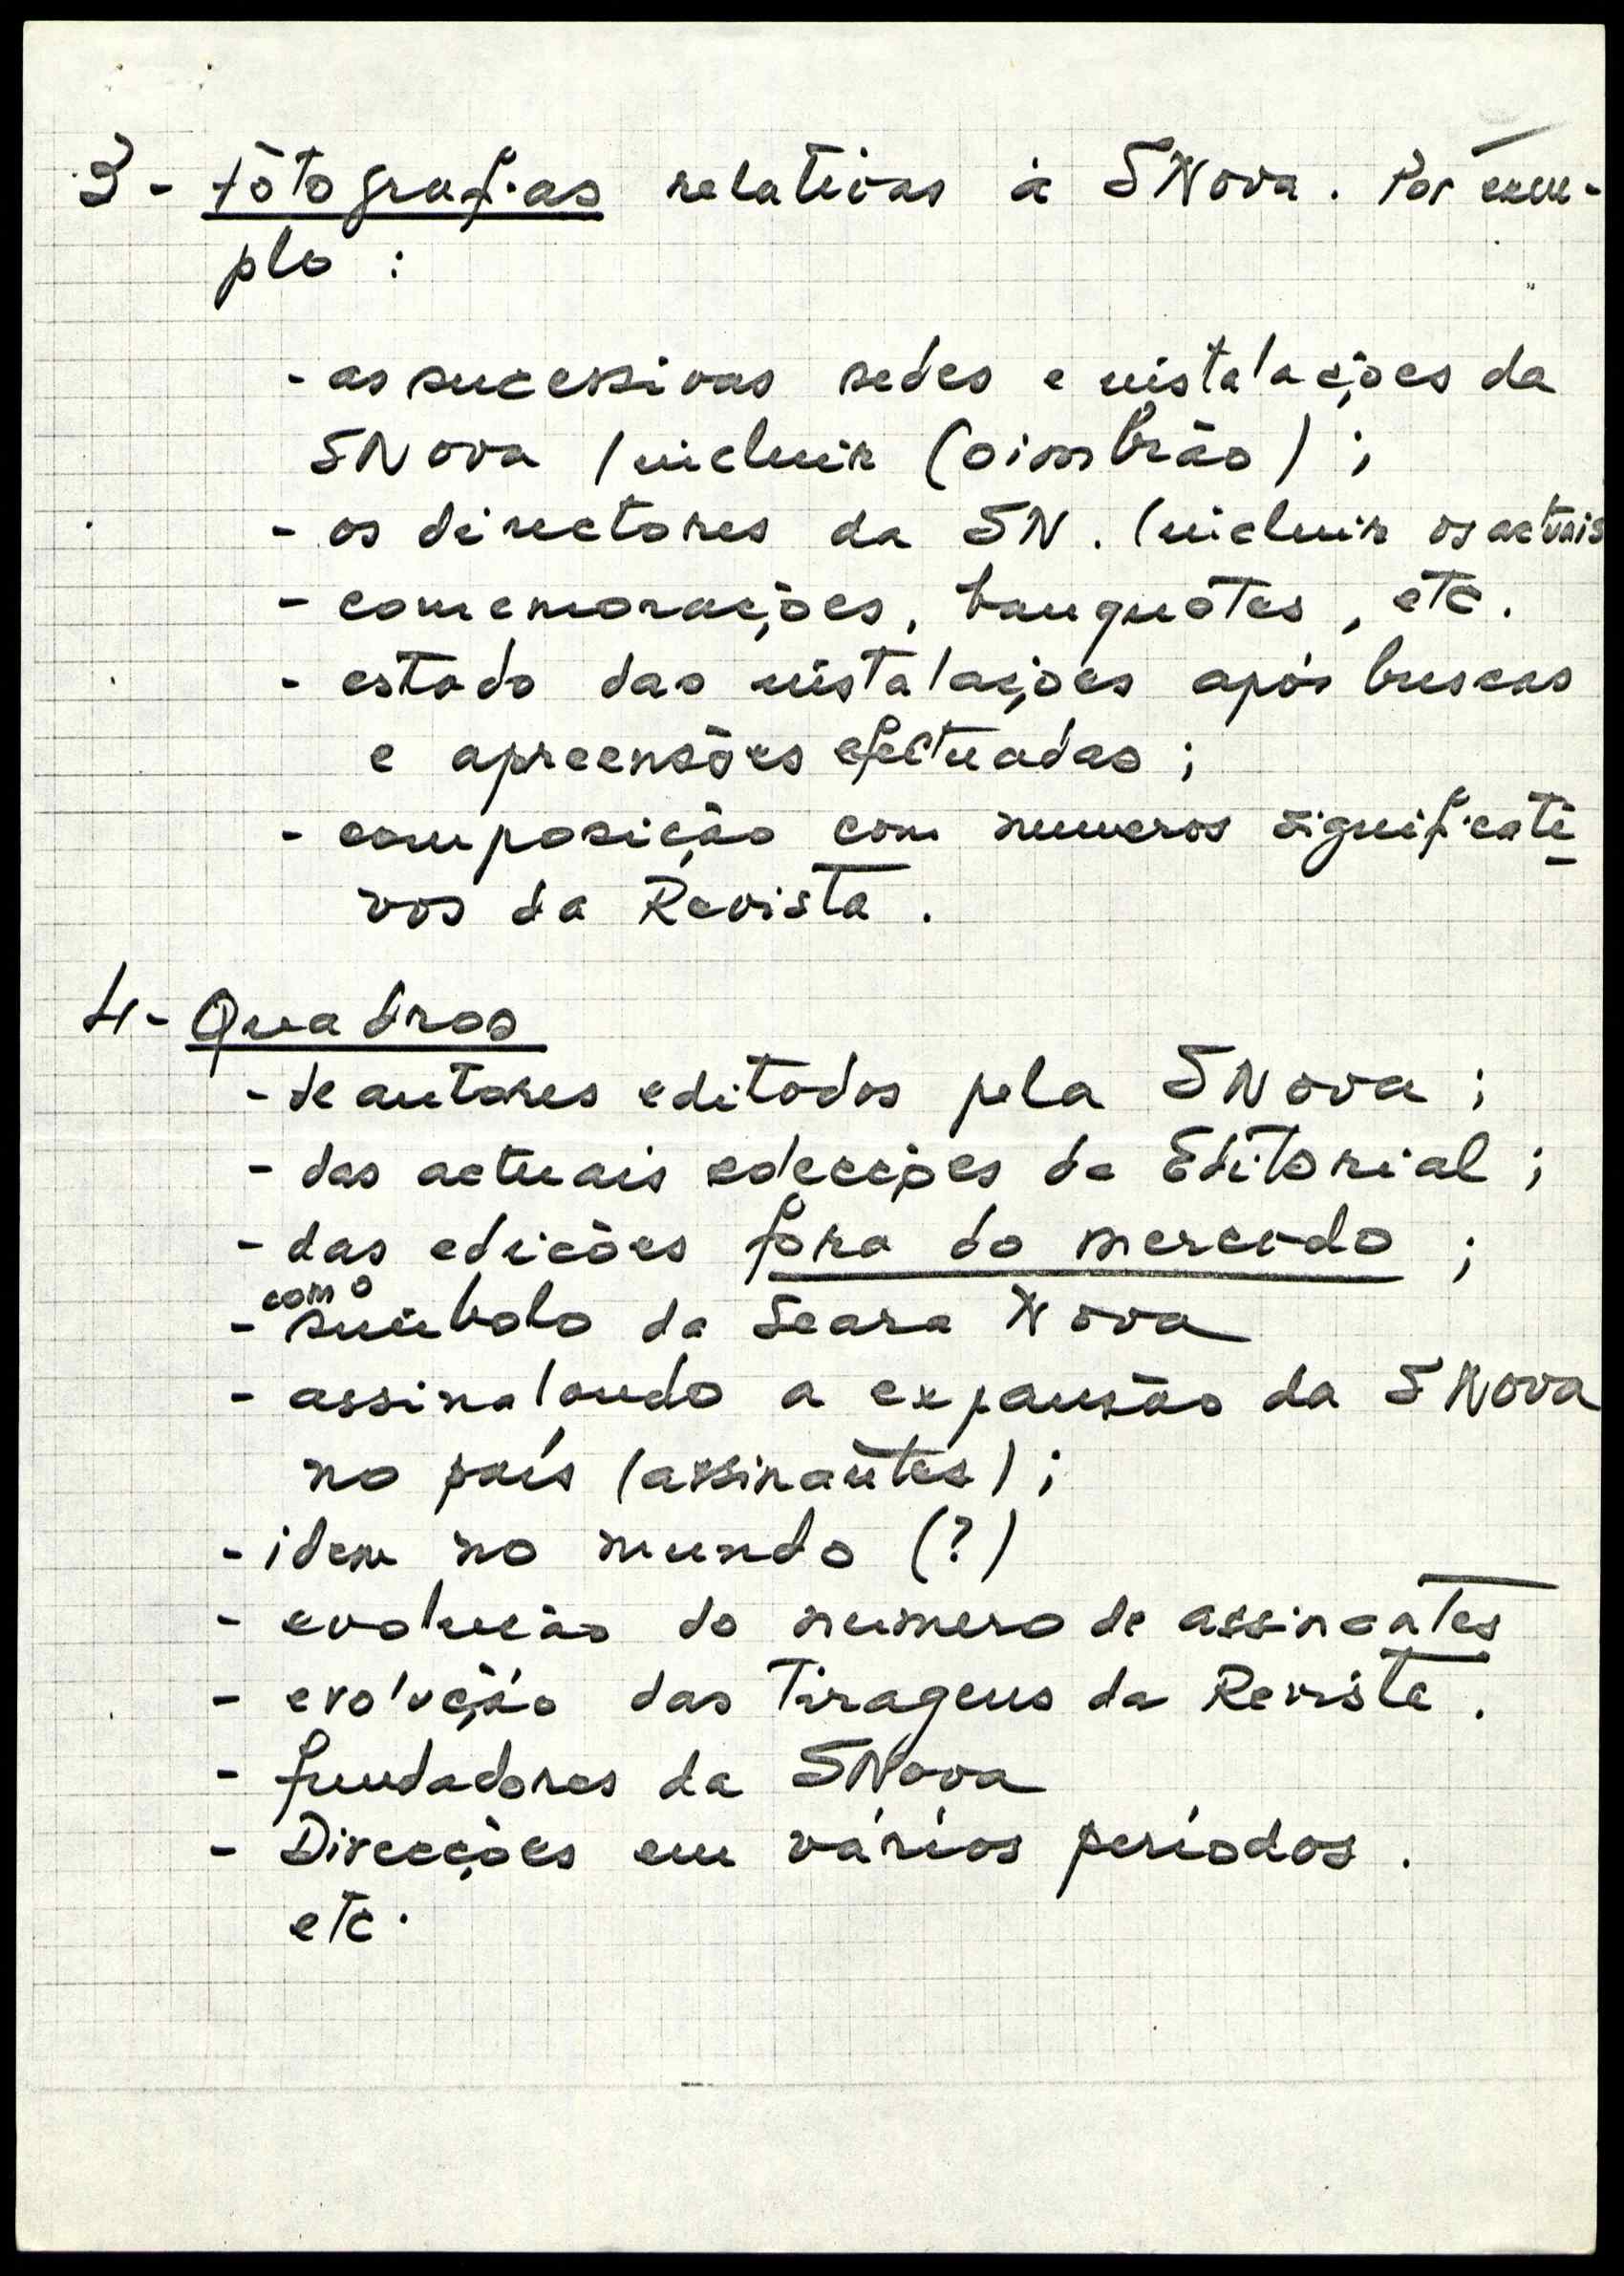 3 - fotografias relativas à SNova. Por exem-
plo :
- as sucessivas sedes e instalações da
SNova (incluir Coimbrão) ;
- os directores da SN. (incluir os actuais
- comemorações, banquetes, etc.
- estado das instalações após buscas
e apreensões efectuadas ;
- composição com numeros significati
vos da Revista .
4 - Quadros
- de autores editados pela SNova ;
- das actuais colecções da Editorial ;
- das edições fora do mercado ;
- com o simbolo da Seara Nova
- assinalando a expansão da SNova
no país (assinantes) ;
- idem no mundo (?)
- evolução do numero de assinantes
- evolução das Tiragens da Revista .
- fundadores da SNova
- Direcções em vários períodos .
etc.